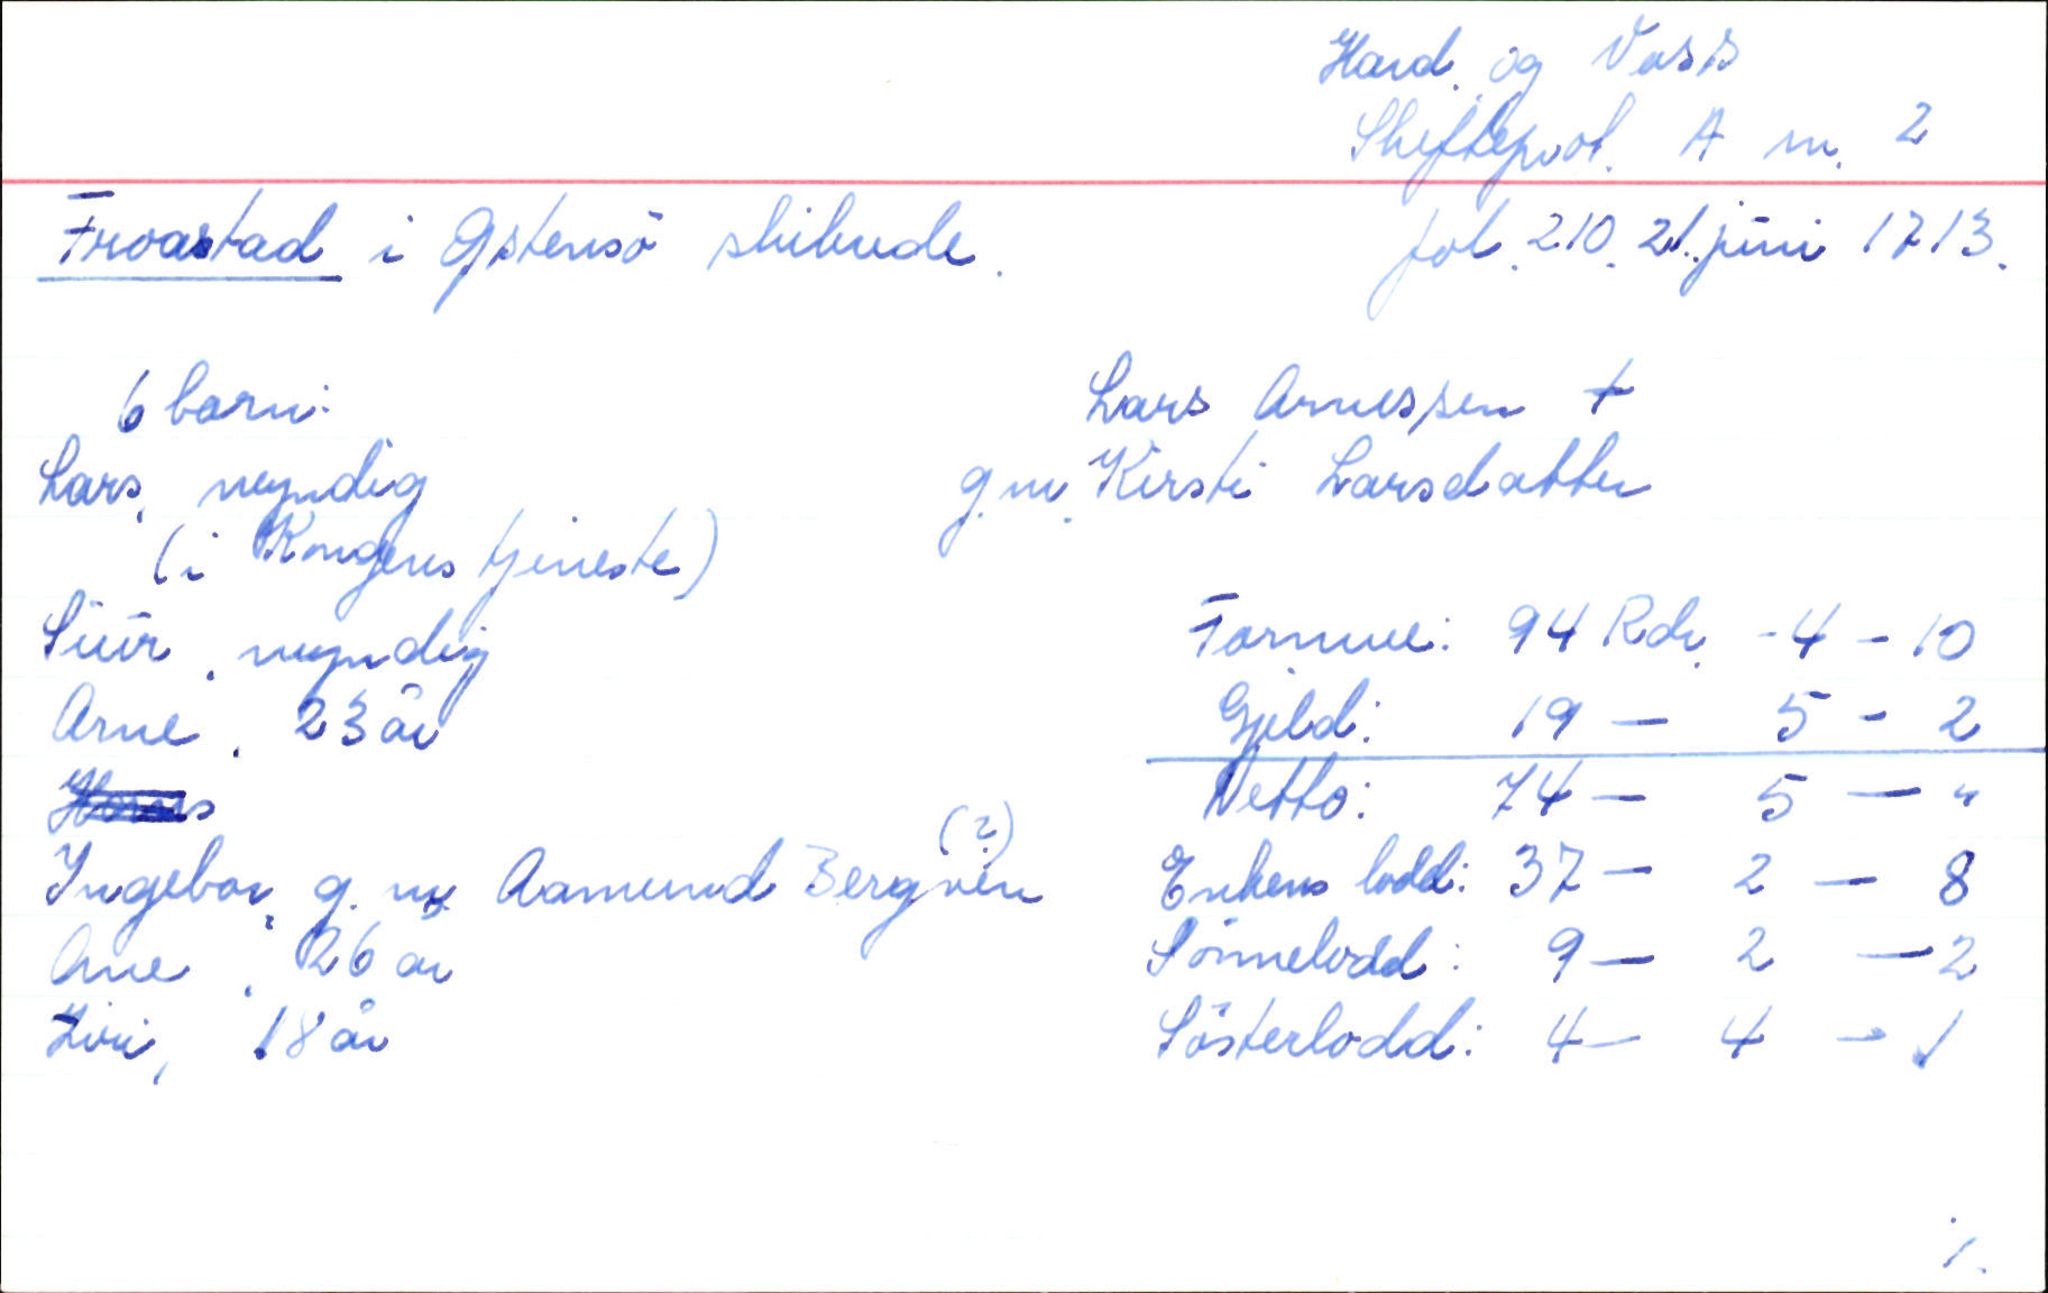 Hard. og Voss
Skifteprot. A nr. 2
Froastad i Østensö skibrede. fol. 210. 21. juni 1713.
6 barn:
Lars, myndig
(i Kongens tjeneste)
Siur, myndig
Arne, 23 år
Ingebor, g. m. Aamund Bergven (?)
Ane, 26 år
Ziri, 18 år
Lars Arnessen †
g.m. Kirsti Larsdatter
Formue: 94 Rdr. - 4 - 10
Gjeld: 19 — 5 - 2
Netto: 74 — 5 — "
Enkens lodd: 37 — 2 — 8
Sönnelodd: 9 — 2 — 2
Sösterlodd: 4 — 4 — 1